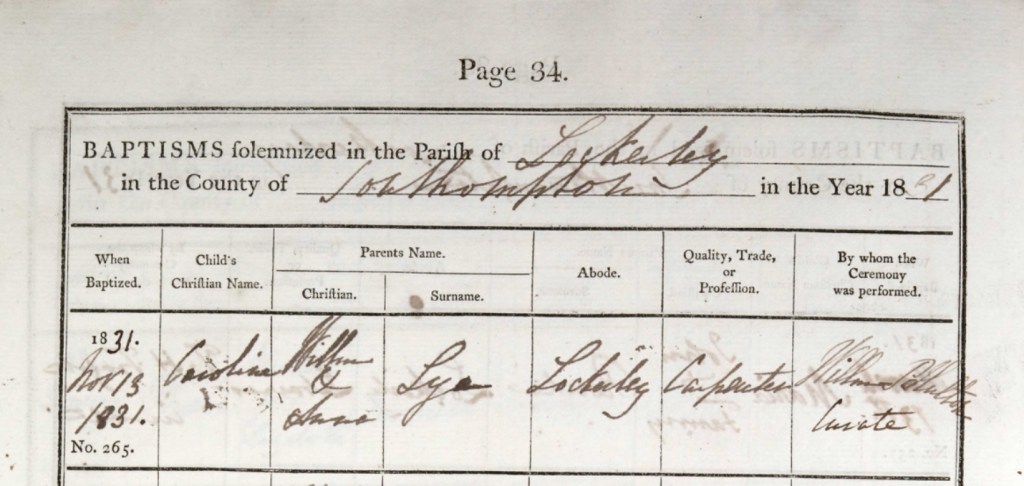 Page 34.
BAPTISMS solemnized in the Parish of Lockerley
in the County of Southampton in the Year 1831
When Baptized.
Child's Christian Name.
Parents Name.
Christian.
Surname.
Abode.
Quality, Trade, or Profession.
By whom the Ceremony was performed.
1831.
Nov 13
1831.
No. 265.
Caroline
William
&
Anna
Lye
Lockerley
Carpenter
William
Curate